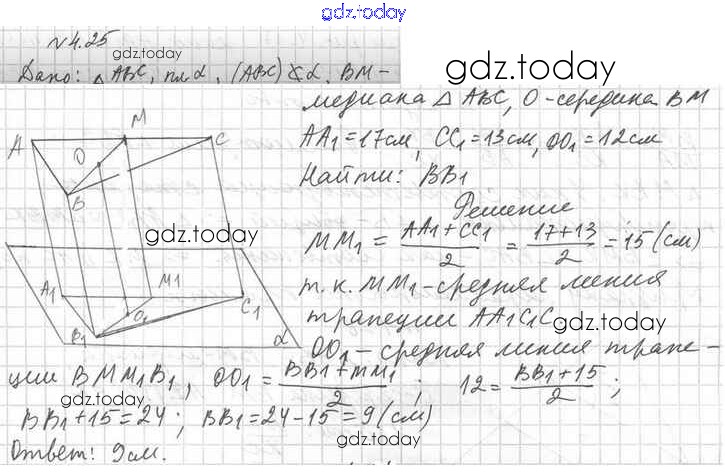 gdz.today
№4.25
gdz.today
gdz.today
Дано: △ABC, пл α, (ABC) ∦ α, BM-
медиана △ABC, O-середина BM
AA1=17см, CC1=13см, OO1=12см
Найти: BB1
Решение
MM1 = (AA1+CC1)/2 = (17+13)/2 = 15 (см)
т.к. MM1-средняя линия
трапеции AA1C1C
OO1 - средняя линия трапе-
ции BMM1B1, OO1 = (BB1+MM1)/2 ; 12 = (BB1+15)/2 ;
BB1+15=24 ; BB1=24-15=9 (см)
Ответ: 9см.
A
M
C
O
B
gdz.today
A1
M1
C1
O1
B1
α
gdz.today
gdz.today
gdz.today